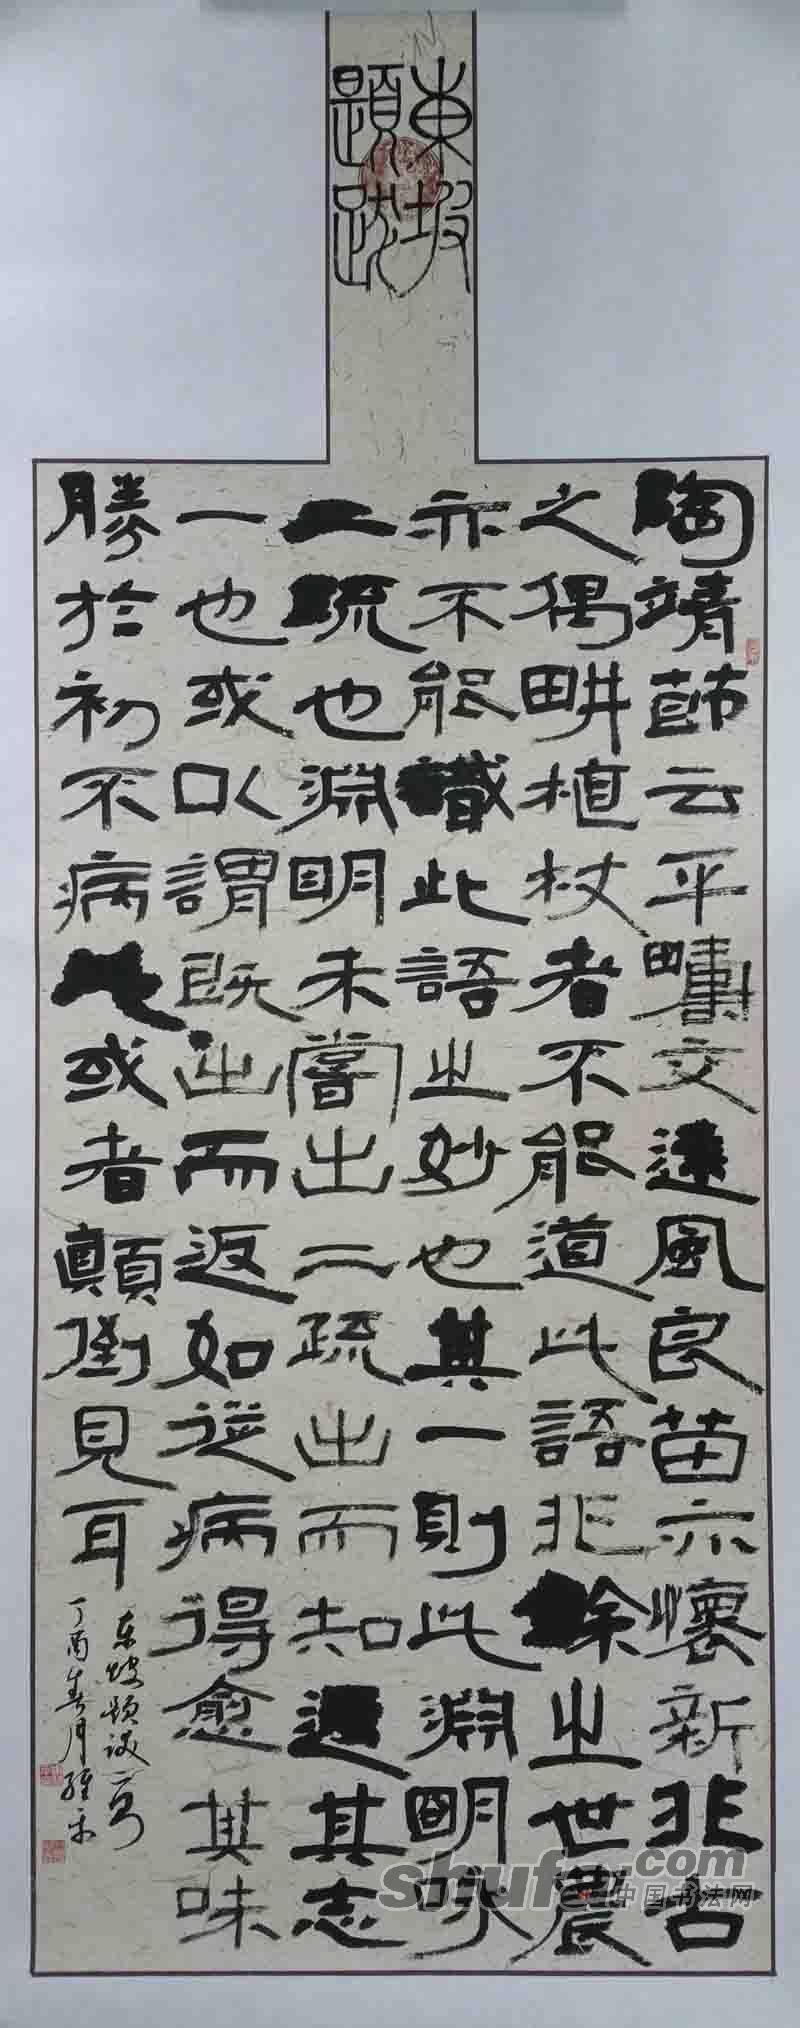 東坡
題跋
陶靖節云平疇交遠風良苗亦懷新非古
之偶畊植杖者不能道此語非餘之世農
亦不能識此語之妙也其一則此淵明詠
二疏也淵明未嘗出二疏出而知返其志
一也或以謂既出而返如從病得愈其味
勝於初不病此或者顛倒見耳
东坡题跋二
丁酉春月
shufa.com
中国书法网